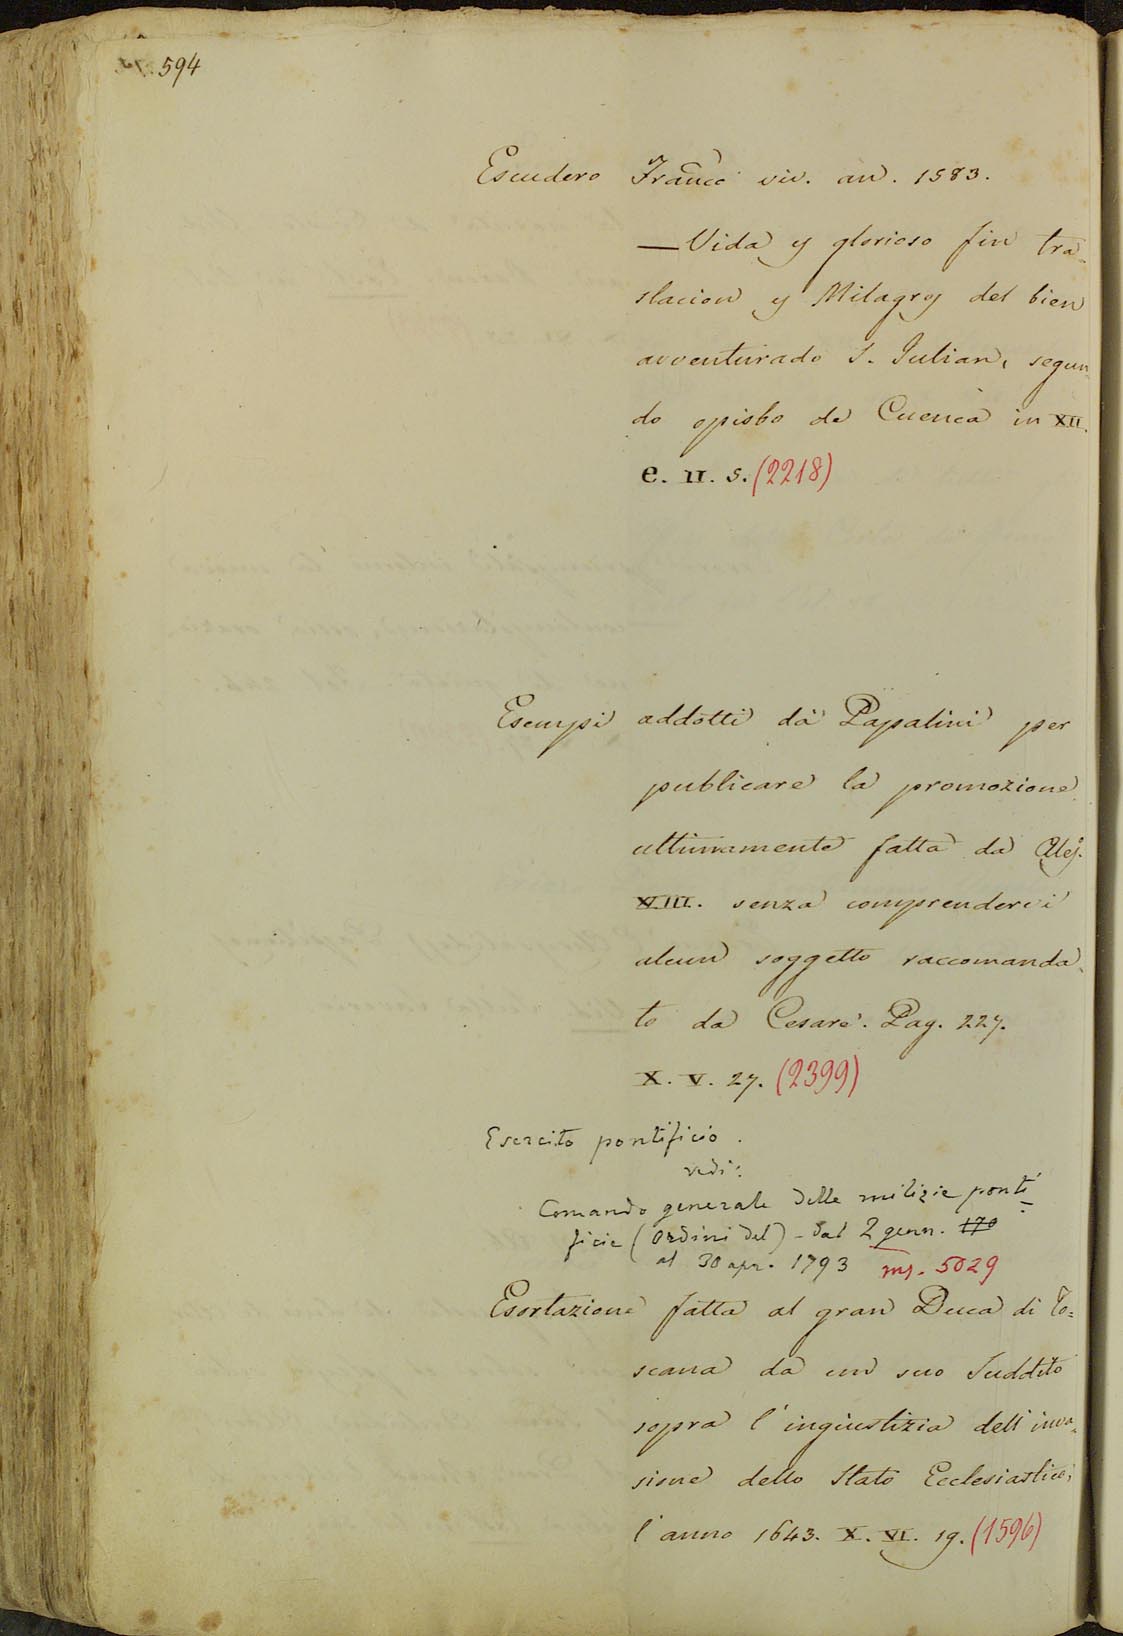 594
Escudero Franc͂o viv. an. 1583.
— Vida y glorioso fin tra-
slacion y Milagros del bien
avventurado S. Julian, segun-
do opisbo de Cuenca in XII.
e. II. 5. (2218)
Esempi addotti da Papalini per
publicare la promozione
ultimamente fatta da Ales.
VIII. senza comprenderci
alcun soggetto raccomanda-
to da Cesare. Pag. 227.
X. V. 27. (2399)
Esercito pontificio.
vedi:
Comando generale delle milizie ponti-
ficie (Ordini del) - dal 2 genn. 170
al 30 apr. 1793 ms. 5029
Esortazione fatta al gran Duca di To=
scana da un suo Suddito
sopra l'ingiustizia dell'inva-
sione dello Stato Ecclesiastico,
l'anno 1643. X. VI. 19. (1596)